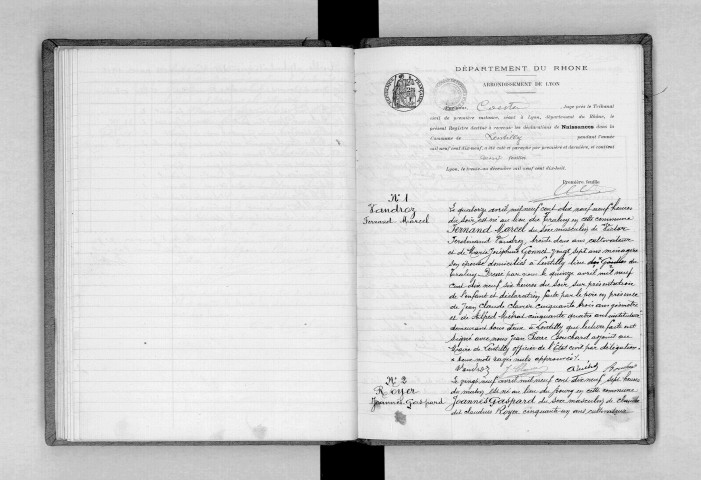 DÉPARTEMENT DU RHONE
ARRONDISSEMENT DE LYON
Coste, Juge près le Tribunal
civil de première instance, séant à Lyon, département du Rhône, le
présent Registre destiné à recevoir les déclarations de Naissances dans la
Commune de Lentilly pendant l'année
mil neuf cent dix-neuf, a été coté et paraphé par première et dernière, et contient
feuillets.
Lyon, le treize décembre mil neuf cent dix-huit.
Première feuille
N° 1
Vandroz
Fernand Marcel
Le quatorze avril mil neuf cent dix neuf neuf heures
du soir, est né au lieu du en cette commune
Fernand Marcel du sexe masculin de Victor
Ferdinand Vandroz, trente deux ans cultivateur
et de Marie Joséphine Gonnet vingt sept ans ménagère
son épouse domiciliés à Lentilly lieu
Dressé par nous le quinze avril mil neuf
cent dix neuf six heures du soir, sur présentation
de l'enfant et déclaration faite par le père en présence
de Jean Claude cinquante trois ans
et de Alfred cinquante quatre ans instituteur
demeurant tous deux à Lentilly qui lecture faite ont
signé avec nous Jean Pierre Bouchard adjoint au
Maire de Lentilly officier de l'Etat civil par délégation
deux mots rayés nuls approuvés
Vandroz
N° 2
Royer
Joannès Gaspard
Le vingt neuf avril mil neuf cent dix neuf, sept heures
du matin, est né au lieu du bourg en cette commune
Joannès Gaspard du sexe masculin de
dit claudius Royer cinquante un ans cultivateur